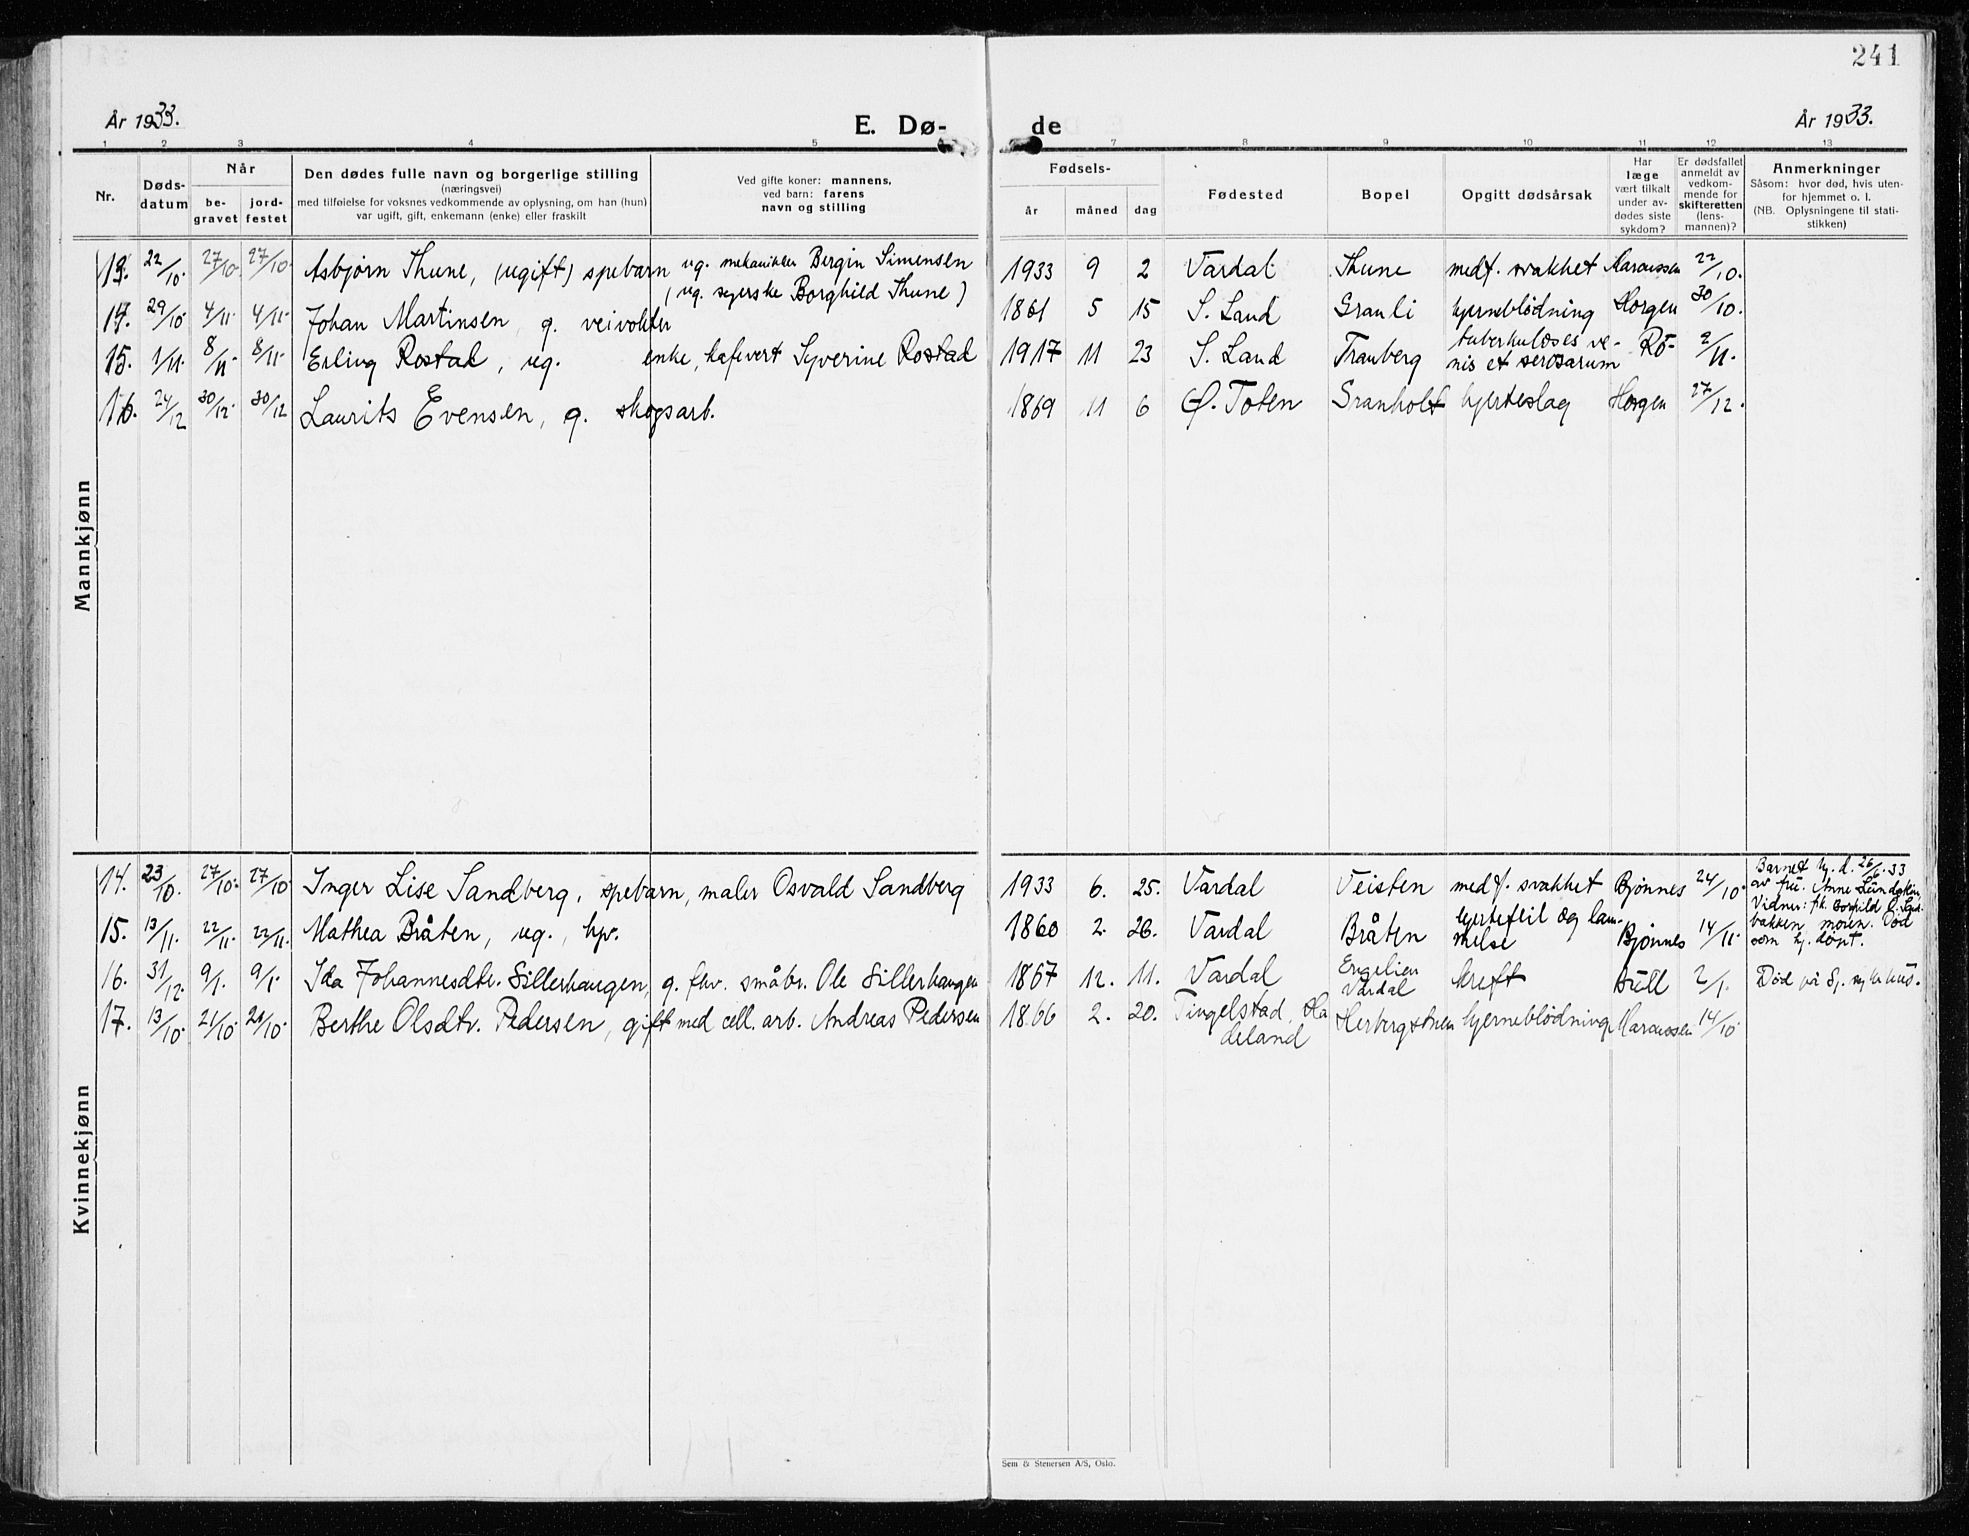 241
År 1933.
E. Dø-
de
År 1933.
1 2 3 4 5 7 8 9 10 11 12 13
Nr.
Døds-
datum
Når
be-
gravet
jord-
festet
Den dødes fulle navn og borgerlige stilling
(næringsvei)
med tilføielse for voksnes vedkommende av oplysning, om han (hun)
var ugift, gift, enkemann (enke) eller fraskilt
Ved gifte koner: mannens,
ved barn: farens
navn og stilling
Fødsels-
år måned dag
Fødested
Bopel
Opgitt dødsårsak
Har
læge
vært tilkalt
under av-
dødes siste
sykdom?
Er dødsfallet
anmeldt av
vedkom-
mende for
skifteretten
(lens-
mannen)?
Anmerkninger
Såsom: hvor død, hvis uten-
for hjemmet o. l.
(NB. Oplysningene til stati-
stikken)
Mannkjønn
13. 22/10. 27/10. 27/10. Asbjørn Thune, (ugift) spebarn ug. mekaniker Bergin Simensen
(ug. syerske Borghild Thune)
1933 9 2 Vardal Thune medf. svakhet Marcussen 22/10.
14. 29/10 4/11 4/11 Johan Martinsen g. veivokter 1861 5 15 S. Land Granli hjerneblödning Horgen 30/10.
15. 1/11. 8/11 8/11 Erling Rostad, ug. enke, kafevert Syverine Rostad 1917 11 23 S. Land Tranberg tuberkuloses ve-
nis et serosarum Rö- 2/11.
16. 24/12 30/12. 30/12 Laurits Evensen, g. skogsarb. 1869 11 6 Ø. Toten Granholt hjerteslag Horgen 27/12.
Kvinnekjønn
14. 23/10. 27/10. 27/10 Inger Lise Sandberg, spebarn, maler Osvald Sandberg 1933 6. 25. Vardal Veisten medf. svakhet Bjønnes 24/10.
Barnet hj. d. 26/6. 33
av fru. Anne
Vidner: frk. Borghild
bakken, moren. Død
som hj. døpt.
15. 13/11. 22/11. 22/11. Mathea Bråten, ug., hv. 1860 2. 26. Vardal Bråten hjertefeil og lam-
melse Bjønnes 14/11
16. 31/12. 9/1. 9/1. Ida Johannesdtr. Sillerhaugen, g. fhv. småbr. Ole Sillerhaugen 1867 12. 11. Vardal Engelien
Vardal kreft Bull 2/1. Død på Gj. sykehus.
17. 13/10. 21/10. 21/10. Berthe Olsdtr. Pedersen, gift med cell. arb. Andreas Pedersen 1866 2. 20. Tingelstad, Ha
deland Herbergstuen hjerneblödning Marcussen 14/10
Sem & Stenersen A/S, Oslo.